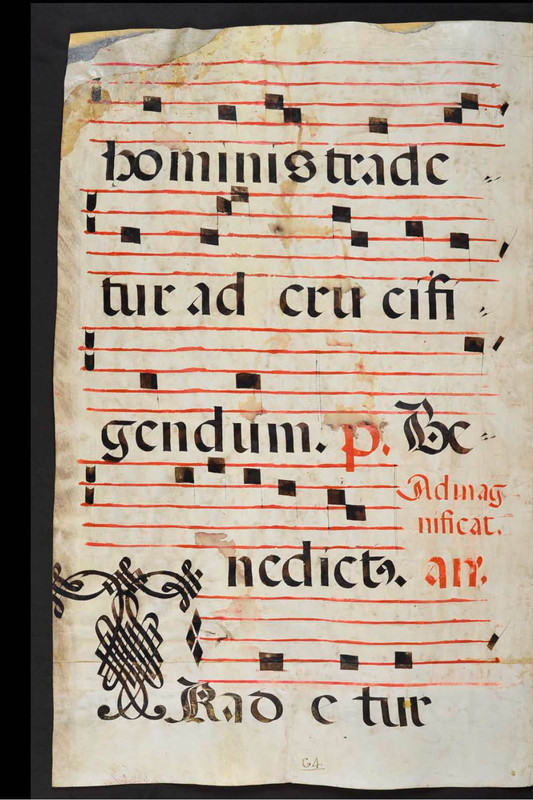 hominis trade
tur ad cru cifi
gendum. p. Be
Ad mag
nificat.
nedictꝰ. an.
TRad e tur
64